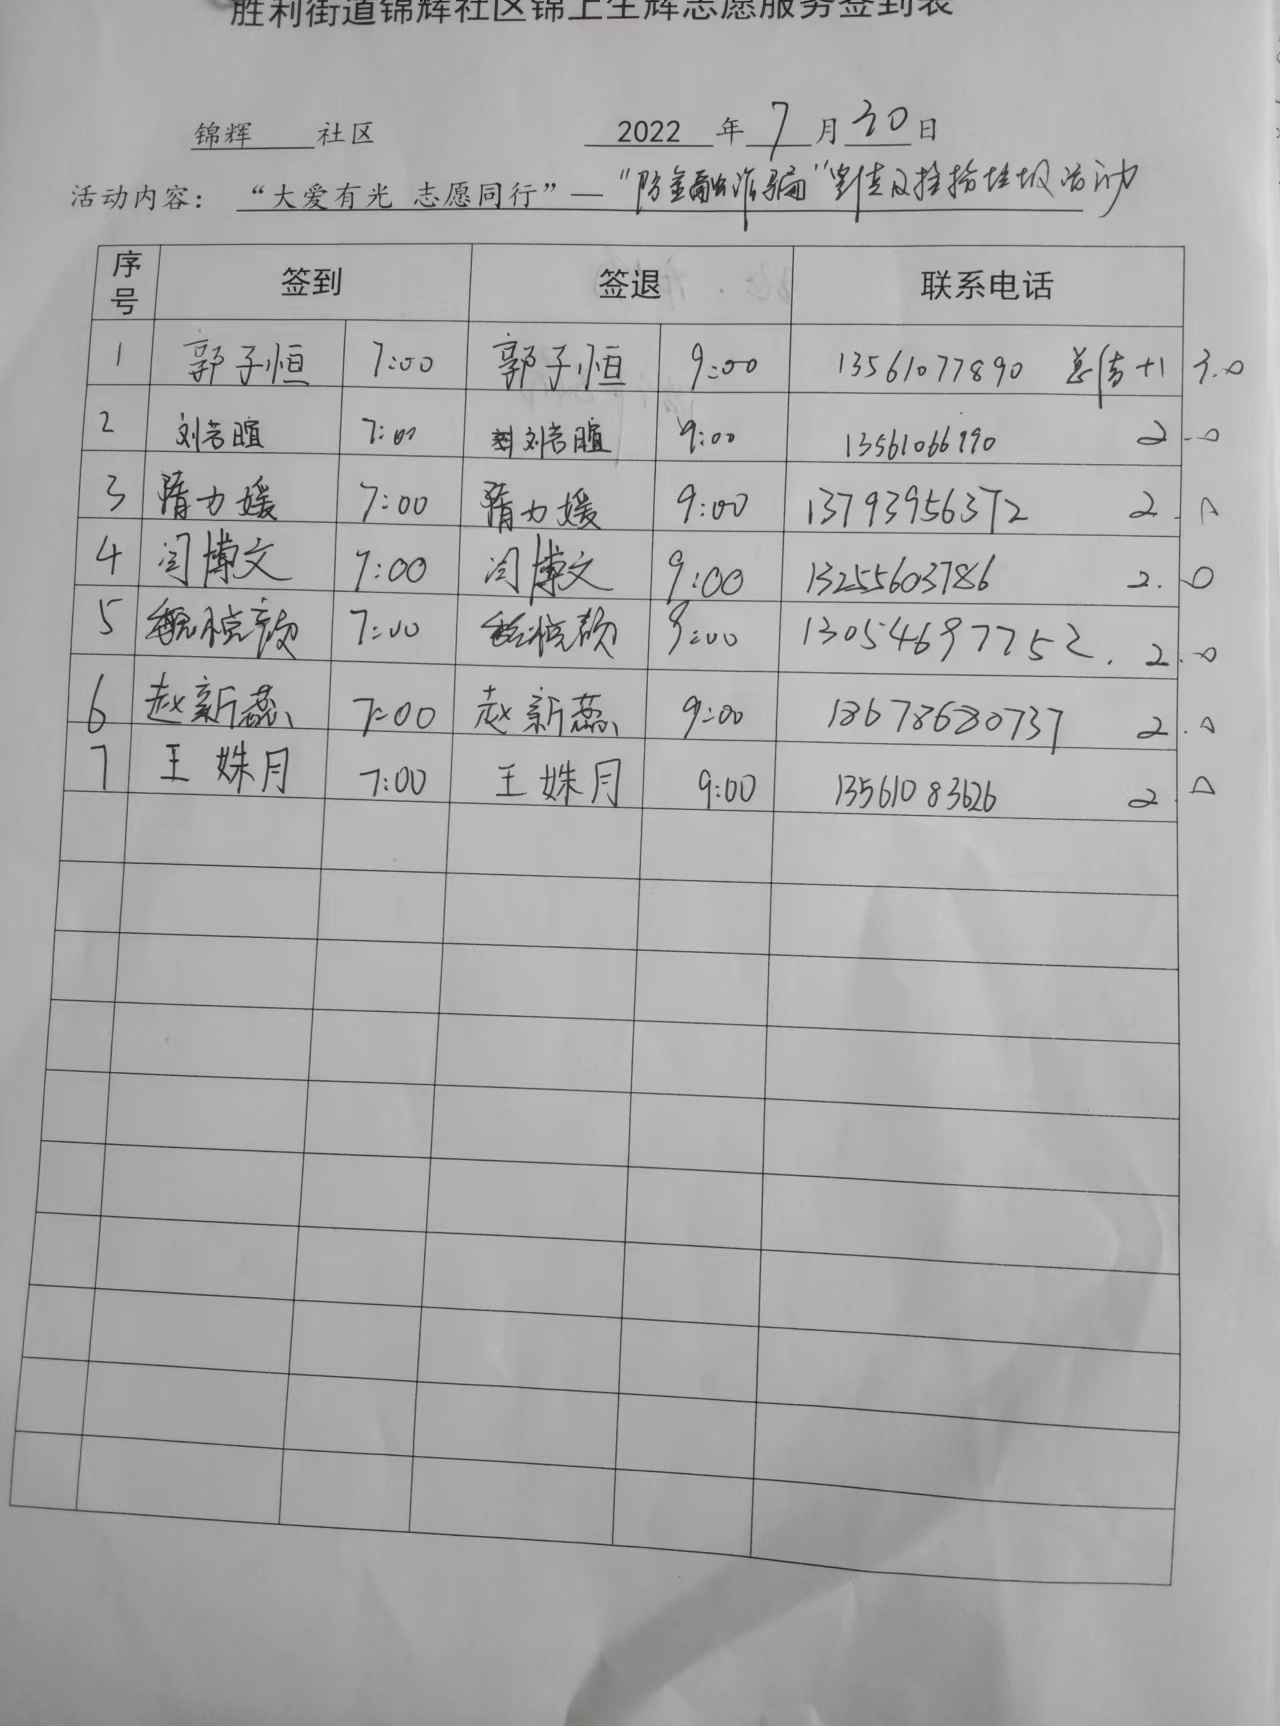 胜利街道锦辉社区锦上生辉志愿服务签到表
锦辉 社区 2022 年 7 月 30 日
活动内容： “大爱有光 志愿同行”— “防金融诈骗”宣传及捡拾垃圾活动
序号 签到 签退 联系电话
1 郭子恒 7:00 郭子恒 9:00 13561077890 总结+1 3.0
2 刘若暄 7:00 刘若暄 9:00 13561066990 2.0
3 隋力媛 7:00 隋力媛 9:00 13793956372 2.0
4 闫博文 7:00 闫博文 9:00 13255603786 2.0
5 7:00 9:00 13054697752. 2.0
6 赵新蕊 7:00 赵新蕊 9:00 18678680737 2.0
7 王姝月 7:00 王姝月 9:00 13561083626 2.0